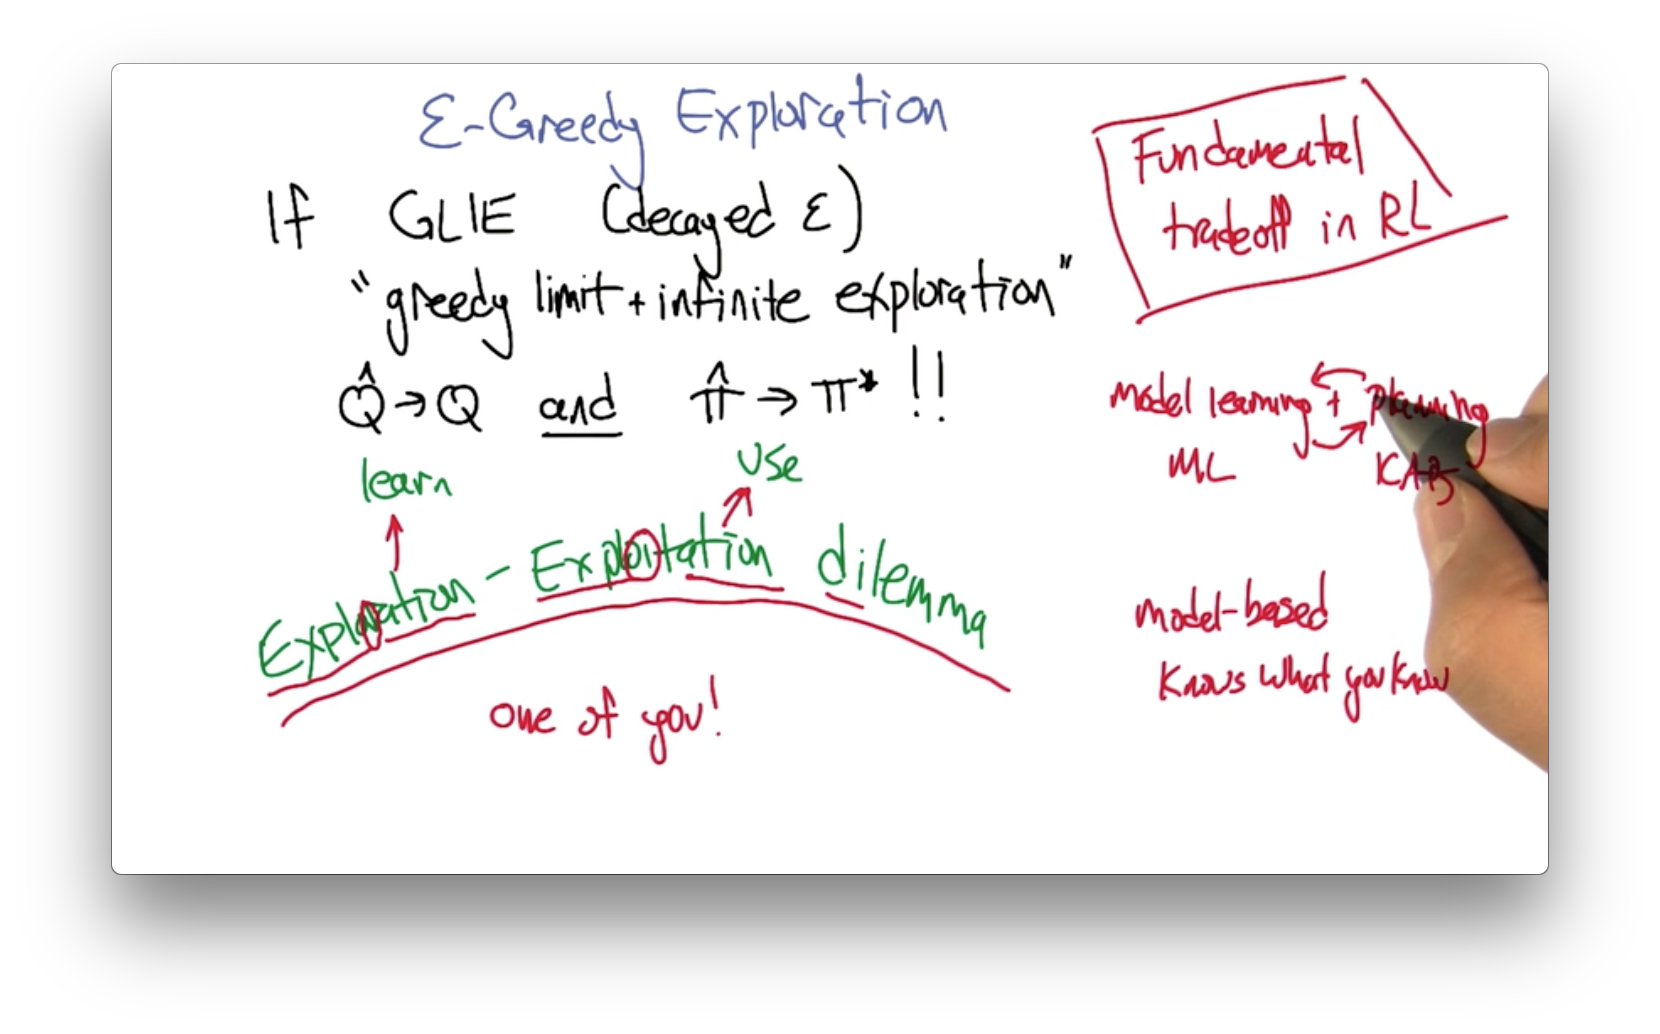 ε-Greedy Exploration
If GLIE (decayed ε)
"greedy limit + infinite exploration"
Q̂ → Q and π̂ → π* !!
learn
use
Exploration - Exploitation dilemma
one of you!
Fundamental
tradeoff in RL
model learning + planning
ML KAB
model-based
Knows what you know